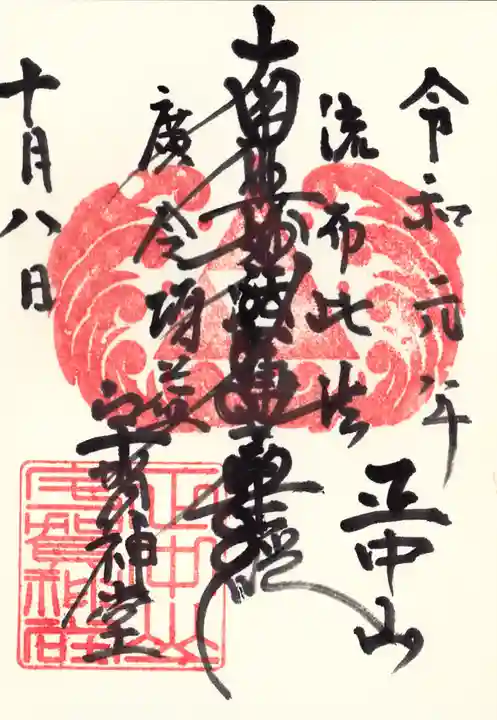 令和元年
正中山
流布此法
南無妙法蓮華経
廣令増益
宇賀神堂
十月八日